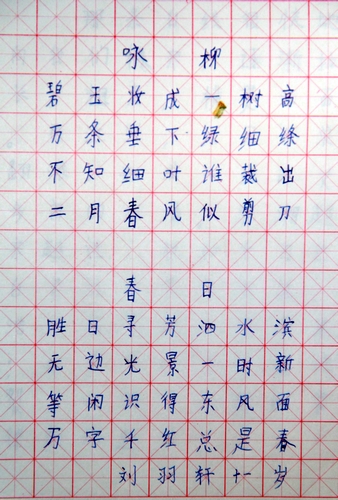 咏柳
碧玉妆成一树高
万条垂下绿细绦
不知细叶谁裁出
二月春风似剪刀
春日
胜日寻芳泗水滨
无边光景一时新
等闲识得东风面
万字千红总是春
刘羽轩十一岁